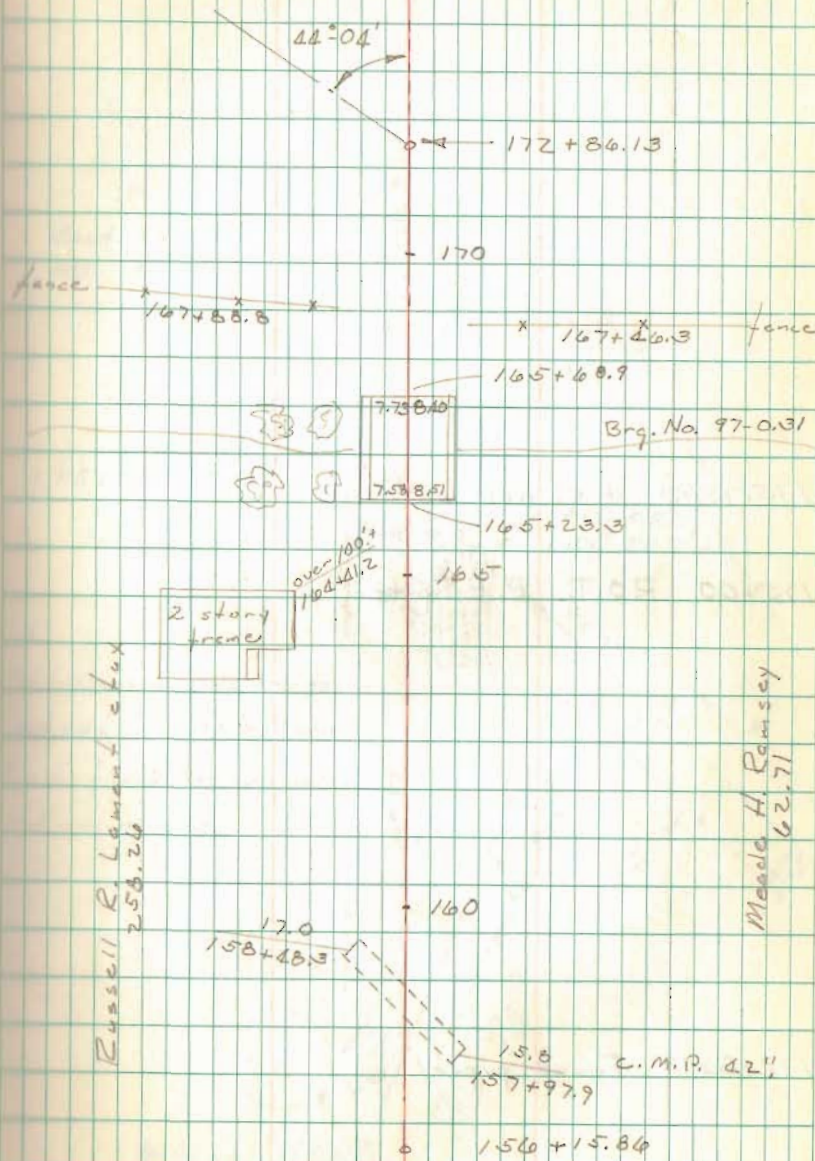 44°-04'
172 + 86.13
170
fence
167+88.8
167+46.3
fence
165+68.9
7.73 8.40
Brg. No. 97-0.31
7.58 8.51
165+23.3
over 100'±
164+41.2
165
2 story
frame
Russell R. Lament etux
258.26
Meade H. Ramsey
62.71
160
17.0
158+48.3
15.8
157+97.9
C.M.P. 42"
156+15.86